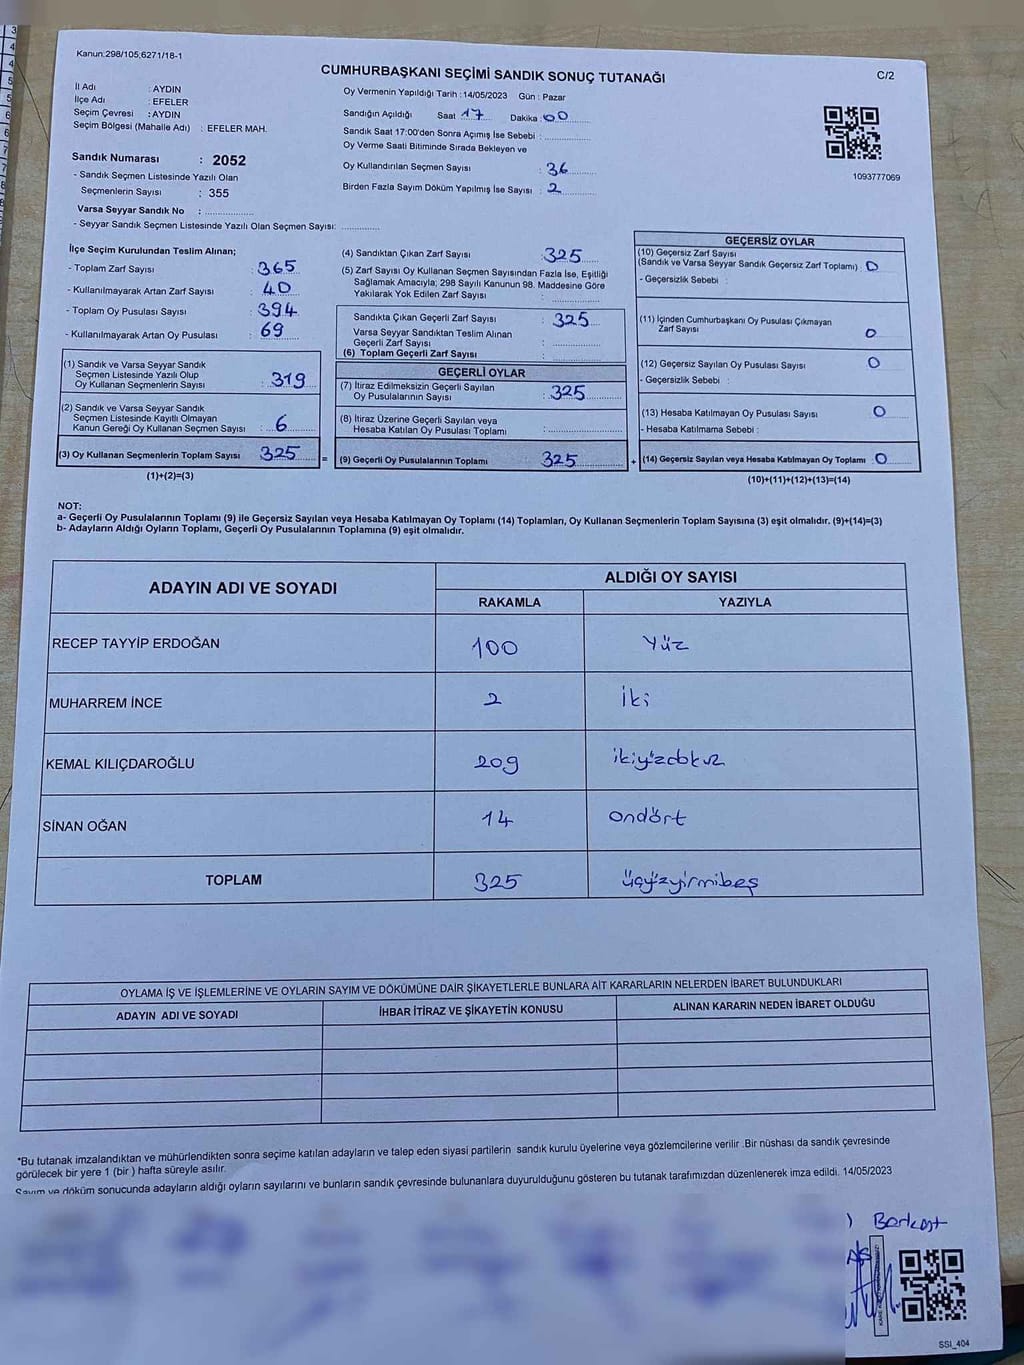 Kanun:298/105;6271/18-1
CUMHURBAŞKANI SEÇİMİ SANDIK SONUÇ TUTANAĞI
C/2
İl Adı : AYDIN
İlçe Adı : EFELER
Seçim Çevresi : AYDIN
Seçim Bölgesi (Mahalle Adı) : EFELER MAH.
Oy Vermenin Yapıldığı Tarih : 14/05/2023 Gün : Pazar
Sandığın Açıldığı Saat 17 Dakika : 00
Sandık Saat 17:00'den Sonra Açımış İse Sebebi :
Oy Verme Saati Bitiminde Sırada Bekleyen ve
Oy Kullandırılan Seçmen Sayısı : 36
Birden Fazla Sayım Döküm Yapılmış İse Sayısı : 2
1093777069
Sandık Numarası : 2052
- Sandık Seçmen Listesinde Yazılı Olan
Seçmenlerin Sayısı : 355
Varsa Seyyar Sandık No :
- Seyyar Sandık Seçmen Listesinde Yazılı Olan Seçmen Sayısı:
İlçe Seçim Kurulundan Teslim Alınan;
- Toplam Zarf Sayısı : 365
- Kullanılmayarak Artan Zarf Sayısı : 40
- Toplam Oy Pusulası Sayısı : 394
- Kullanılmayarak Artan Oy Pusulası : 69
(1) Sandık ve Varsa Seyyar Sandık
Seçmen Listesinde Yazılı Olup
Oy Kullanan Seçmenlerin Sayısı : 319
(2) Sandık ve Varsa Seyyar Sandık
Seçmen Listesinde Kayıtlı Olmayan
Kanun Gereği Oy Kullanan Seçmen Sayısı : 6
(3) Oy Kullanan Seçmenlerin Toplam Sayısı 325
(1)+(2)=(3)
(4) Sandıktan Çıkan Zarf Sayısı : 325
(5) Zarf Sayısı Oy Kullanan Seçmen Sayısından Fazla İse, Eşitliği
Sağlamak Amacıyla; 298 Sayılı Kanunun 98. Maddesine Göre
Yakılarak Yok Edilen Zarf Sayısı :
Sandıkta Çıkan Geçerli Zarf Sayısı : 325
Varsa Seyyar Sandıktan Teslim Alınan
Geçerli Zarf Sayısı :
(6) Toplam Geçerli Zarf Sayısı :
GEÇERLİ OYLAR
(7) İtiraz Edilmeksizin Geçerli Sayılan
Oy Pusulalarının Sayısı : 325
(8) İtiraz Üzerine Geçerli Sayılan veya
Hesaba Katılan Oy Pusulası Toplamı :
= (9) Geçerli Oy Pusulalarının Toplamı 325
GEÇERSİZ OYLAR
(10) Geçersiz Zarf Sayısı
(Sandık ve Varsa Seyyar Sandık Geçersiz Zarf Toplamı) : 0
- Geçersizlik Sebebi :
(11) İçinden Cumhurbaşkanı Oy Pusulası Çıkmayan
Zarf Sayısı 0
(12) Geçersiz Sayılan Oy Pusulası Sayısı : 0
- Geçersizlik Sebebi :
(13) Hesaba Katılmayan Oy Pusulası Sayısı : 0
- Hesaba Katılmama Sebebi :
+ (14) Geçersiz Sayılan veya Hesaba Katılmayan Oy Toplamı : 0
(10)+(11)+(12)+(13)=(14)
NOT:
a- Geçerli Oy Pusulalarının Toplamı (9) ile Geçersiz Sayılan veya Hesaba Katılmayan Oy Toplamı (14) Toplamları, Oy Kullanan Seçmenlerin Toplam Sayısına (3) eşit olmalıdır. (9)+(14)=(3)
b- Adayların Aldığı Oyların Toplamı, Geçerli Oy Pusulalarının Toplamına (9) eşit olmalıdır.
ADAYIN ADI VE SOYADI
ALDIĞI OY SAYISI
RAKAMLA YAZIYLA
RECEP TAYYİP ERDOĞAN 100 Yüz
MUHARREM İNCE 2 iki
KEMAL KILIÇDAROĞLU 209 ikiyüzdokuz
SİNAN OĞAN 14 ondört
TOPLAM 325 üçyüzyirmibeş
OYLAMA İŞ VE İŞLEMLERİNE VE OYLARIN SAYIM VE DÖKÜMÜNE DAİR ŞİKAYETLERLE BUNLARA AİT KARARLARIN NELERDEN İBARET BULUNDUKLARI
ADAYIN ADI VE SOYADI İHBAR İTİRAZ VE ŞİKAYETİN KONUSU ALINAN KARARIN NEDEN İBARET OLDUĞU
*Bu tutanak imzalandıktan ve mühürlendikten sonra seçime katılan adayların ve talep eden siyasi partilerin sandık kurulu üyelerine veya gözlemcilerine verilir .Bir nüshası da sandık çevresinde
görülecek bir yere 1 (bir ) hafta süreyle asılır.
Sayım ve döküm sonucunda adayların aldığı oyların sayılarını ve bunların sandık çevresinde bulunanlara duyurulduğunu gösteren bu tutanak tarafımızdan düzenlenerek imza edildi. 14/05/2023
SSI_404